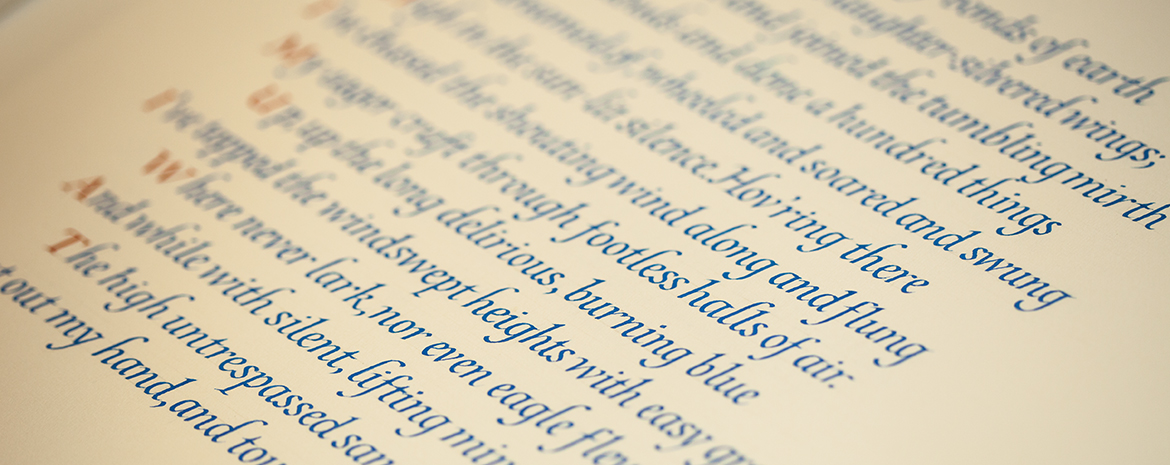 bonds of earth
laughter-silvered wings;
and joined the tumbling mirth
and done a hundred things
dreamed of wheeled and soared and swung
High in the sun-lit silence. Hov'ring there
I've chased the shouting wind along and flung
My eager craft through footless halls of air.
Up, up the long delirious, burning blue
I've topped the windswept heights with easy gr
Where never lark, nor even eagle flew
And while with silent, lifting min
The high untrespassed san
t out my hand, and tou